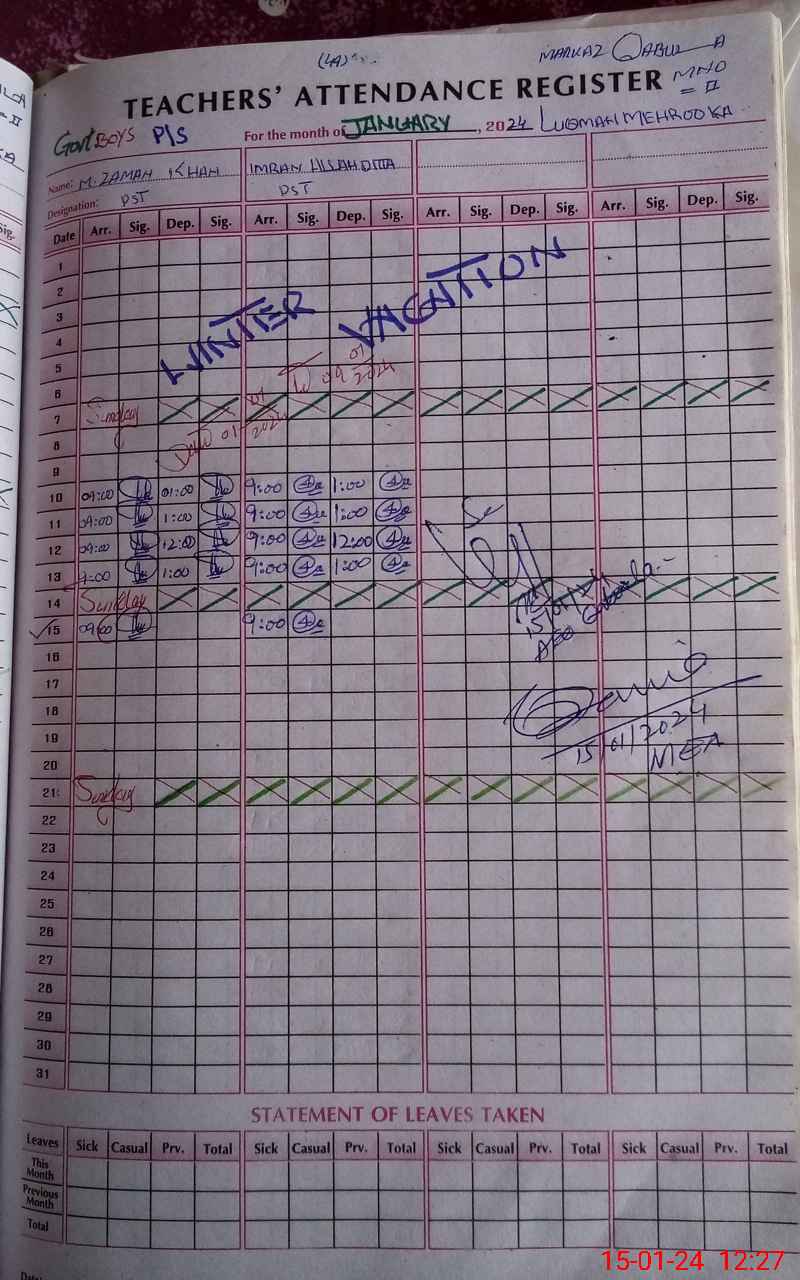 MARKAZ QABULA
TEACHERS' ATTENDANCE REGISTER MNO
= II
Govt BOYS P/S For the month of JANUARY, 2024 LUQMAN MEHROOKA
Name: M. ZAMAN KHAN IMRAN ULLAH DITTA
Designation: PST PST
Date Arr. Sig. Dep. Sig. Arr. Sig. Dep. Sig. Arr. Sig. Dep. Sig. Arr. Sig. Dep. Sig.
1
2
3
4
5
WINTER VACATION
6
7 Sunday
From 01/01/2024 To 09/01/2024
8
9
10 09:00 01:00 9:00 1:00
11 09:00 1:00 9:00 1:00
12 09:00 12:00 9:00 12:00
13 9:00 1:00 9:00 1:00
14 Sunday
15 09:00 9:00
15/01/24
AEO
16
17
18
19
15/01/2024
MEA
20
21 Sunday
22
23
24
25
26
27
28
29
30
31
STATEMENT OF LEAVES TAKEN
Leaves Sick Casual Prv. Total Sick Casual Prv. Total Sick Casual Prv. Total Sick Casual Prv. Total
This Month
Previous Month
Total
15-01-24 12:27